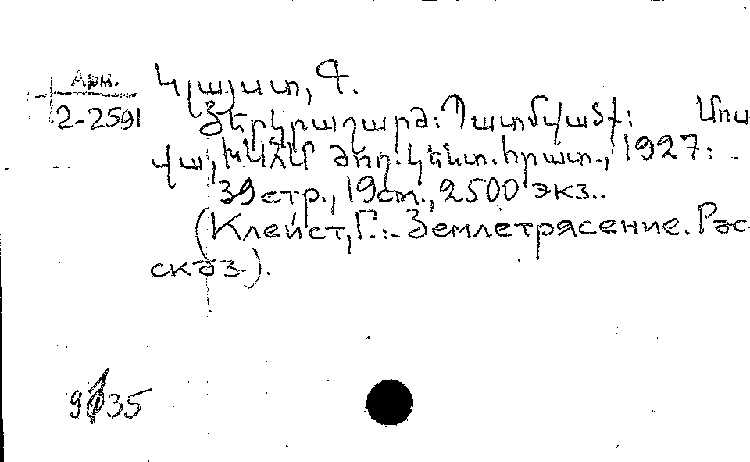 Арм.
2-2591
Կլայստ, Գ.
Երկրաշարժ: Պատմվածք: Մոս
կվա, ԽՍՀՄ ժող. կենտ. հրատ., 1927:
39 стр., 19 см., 2500 экз..
(Клейст, Г.:- Землетрясение. Рас
сказ.).
35